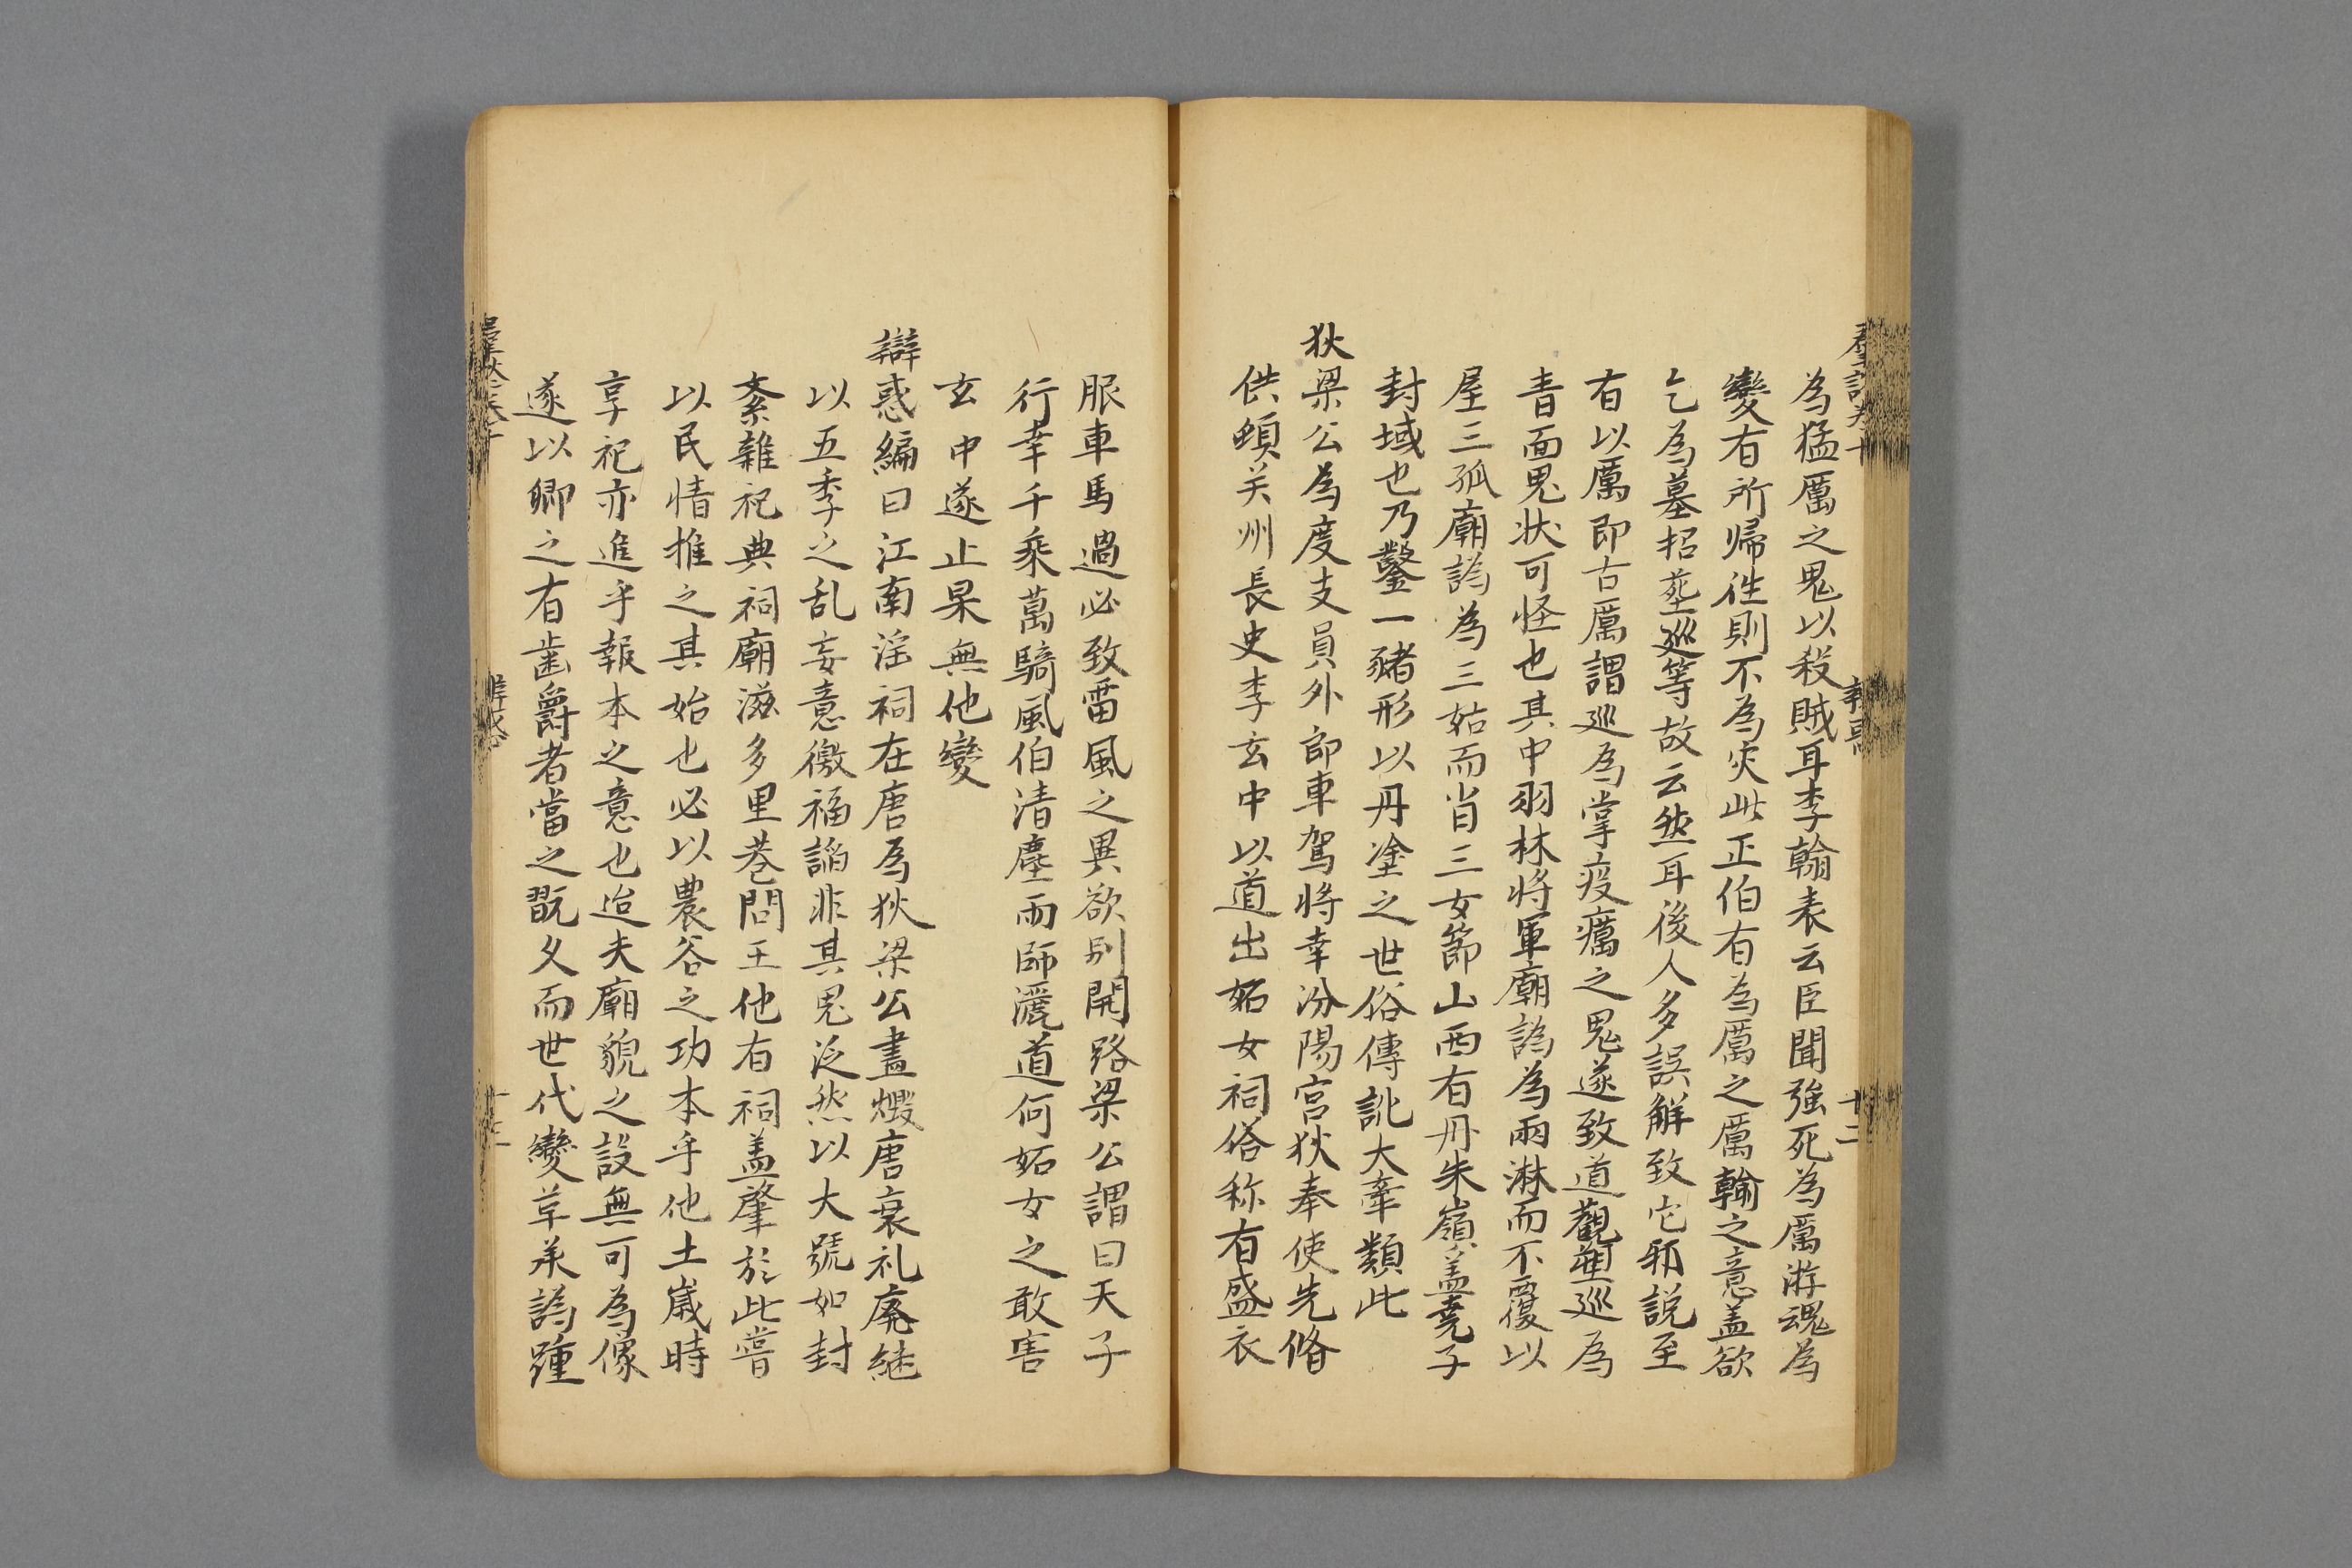 為猛厲之鬼以殺賊耳李翰表云臣聞強死為厲游魂為
變有所歸徃則不為灾此正伯有為厲之厲翰之意盖欲
乞為墓招塟巡等故云然耳後人多誤解致它邪説至
有以厲即古厲謂巡為掌疫癘之鬼遂致道觀塑巡為
青面鬼狀可怪也其中羽林將軍廟譌為雨淋而不覆以
屋三孤廟譌為三姑而肖三女節山西有丹朱嶺盖堯子
封域也乃鑿一豬形以丹塗之世俗傳訛大率類此
狄梁公為度支員外郎車駕將幸汾陽宮狄奉使先脩
供頓关州長史李玄中以道出妬女祠俗称有盛衣
服車馬過必致雷風之異欲别開路梁公謂曰天子
行幸千乘萬騎風伯清塵雨師灑道何妬女之敢害
玄中遂止杲無他變
辯惑編曰江南淫祠在唐為狄梁公盡燬唐衰礼廃継
以五季之乱妄意徼福諂非其鬼泛然以大號如封
紊雜祀典祠廟滋多里巷問王他有祠盖肇於此嘗
以民情推之其始也必以農谷之功本乎他土歲時
享祀亦進乎報本之意也迨夫廟貌之設無可為像
遂以卿之有齒爵者當之既乆而世代變革承譌踵